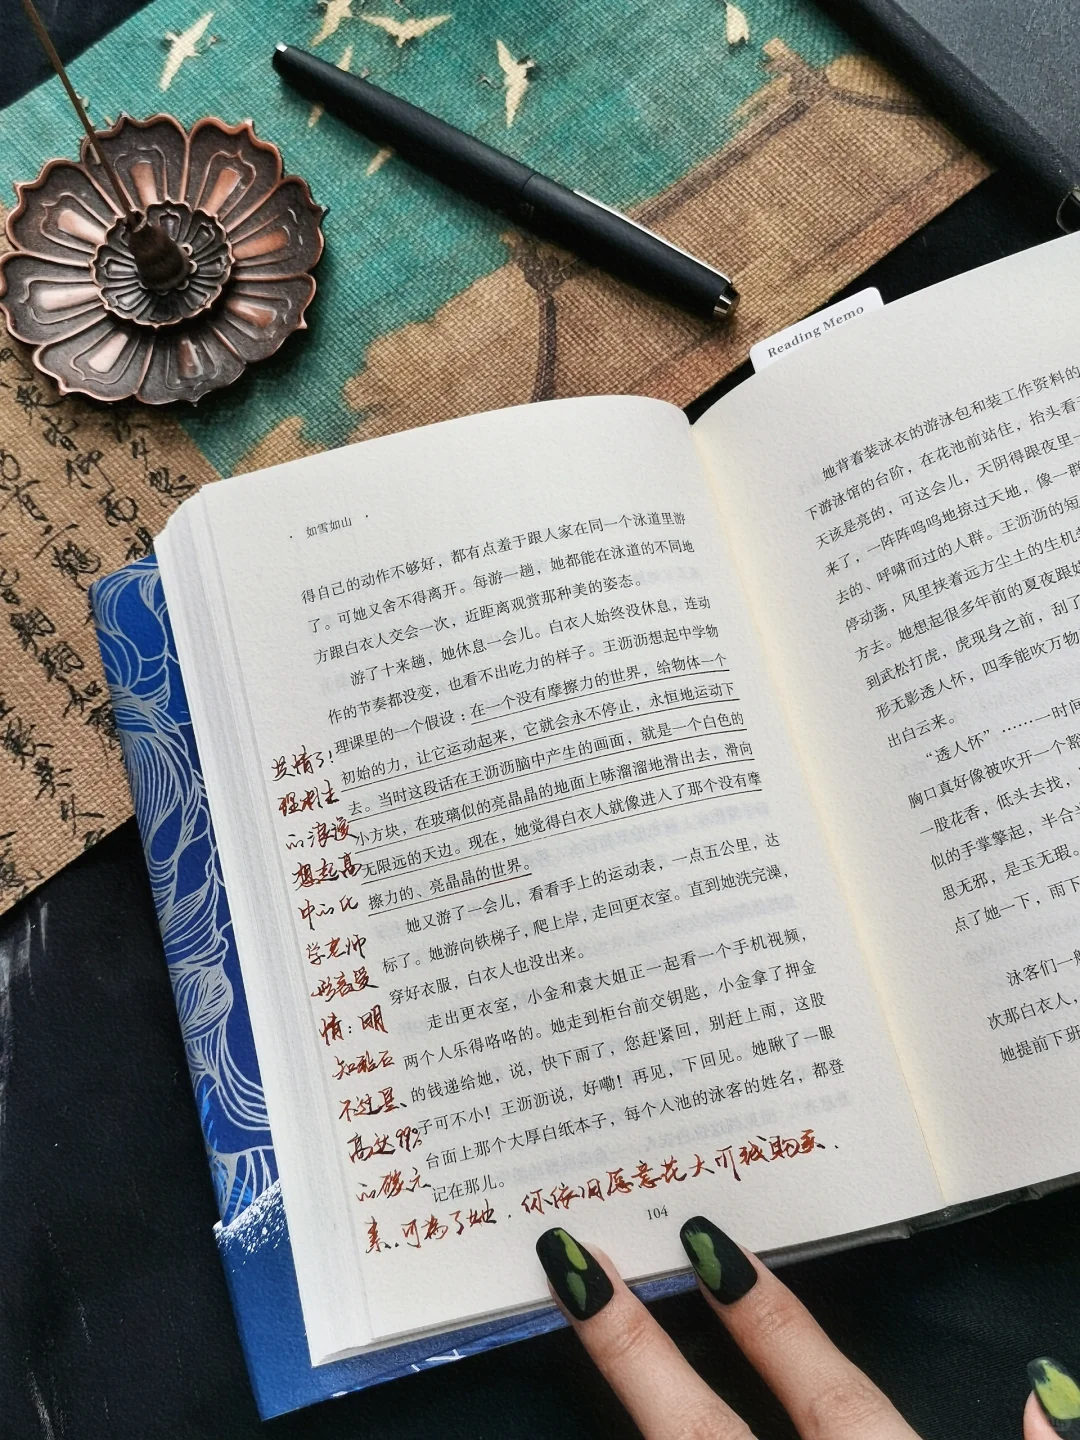 Reading Memo
如雪如山
得自己的动作不够好，都有点羞于跟人家在同一个泳道里游
了。可她又舍不得离开。每游一趟，她都能在泳道的不同地
方跟白衣人交会一次，近距离观赏那种美的姿态。
游了十来趟，她休息一会儿。白衣人始终没休息，连动
作的节奏都没变，也看不出吃力的样子。王沥沥想起中学物
理课里的一个假设：在一个没有摩擦力的世界，给物体一个
初始的力，让它运动起来，它就会永不停止，永恒地运动下
去。当时这段话在王沥沥脑中产生的画面，就是一个白色的
小方块，在玻璃似的亮晶晶的地面上哧溜溜地滑出去，滑向
无限远的天边。现在，她觉得白衣人就像进入了那个没有摩
擦力的、亮晶晶的世界。
她又游了一会儿，看看手上的运动表，一点五公里，达
标了。她游向铁梯子，爬上岸，走回更衣室。直到她洗完澡，
穿好衣服，白衣人也没出来。
走出更衣室，小金和袁大姐正一起看一个手机视频，
两个人乐得咯咯的。她走到柜台前交钥匙，小金拿了押金
的钱递给她，说，快下雨了，您赶紧回，别赶上雨，这股
子可不小！王沥沥说，好嘞！再见，下回见。她瞅了一眼
台面上那个大厚白纸本子，每个人池的泳客的姓名，都登
记在那儿。
104
共情了！
理科生
的浪漫
想起高
中的化
学老师
形容爱
情：明
知钻石
不过是
高达99%
的碳元
素，可为了她，你依旧愿意花大价钱购买．
她背着装泳衣的游泳包和装工作资料的
下游泳馆的台阶，在花池前站住，抬头看
天该是亮的，可这会儿，天阴得跟夜里一
来了，一阵阵呜呜地掠过天地，像一群
去的、呼啸而过的人群。王沥沥的短
停动荡，风里挟着远方尘土的生机
方去。她想起很多年前的夏夜跟
到武松打虎，虎现身之前，刮了
形无影透人怀，四季能吹万物
出白云来。
“透人怀”……一时间
胸口真好像被吹开一个
一股花香，低头去找，
似的手掌擎起，半合
思无邪，是玉无瑕。
点了她一下，雨下
泳客们一
次那白衣人，
她提前下班